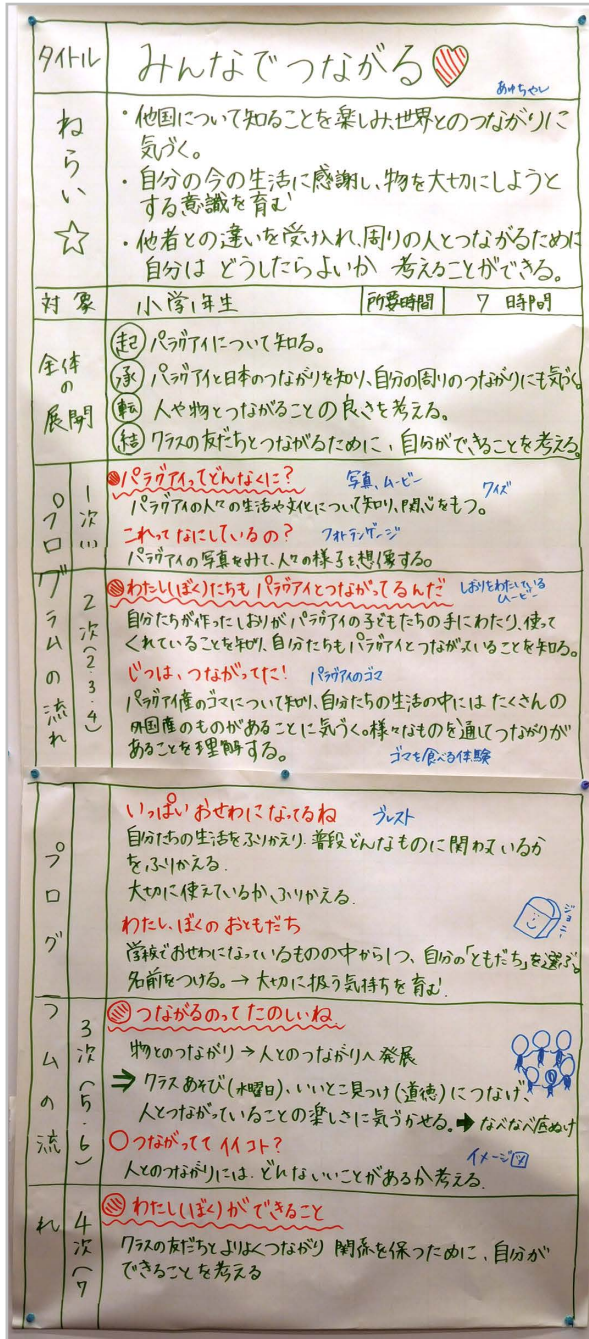 タイトル
みんなでつながる♡
あゆちゃん
ねらい☆
・他国について知ることを楽しみ、世界とのつながりに
気づく。
・自分の今の生活に感謝し、物を大切にしようと
する意識を育む
・他者との違いを受け入れ、周りの人とつながるために
自分は どうしたらよいか 考えることができる。
対象
小学1年生
所要時間
7 時間
全体の展開
起 パラグアイについて知る。
承 パラグアイと日本のつながりを知り、自分の周りのつながりにも気づく。
転 人や物とつながることの良さを考える。
結 クラスの友だちとつながるために、自分ができることを考える。
プログラムの流れ
1次(1)
パラグアイってどんなくに?
写真、ムービー
クイズ
パラグアイの人々の生活や文化について知り、関心をもつ。
これってなにしているの?
フォトランゲージ
パラグアイの写真をみて、人々の様子を想像する。
2次(2・3・4)
わたし(ぼく)たちも パラグアイとつながってるんだ
しおりをわたしている
ムービー
自分たちが作ったしおりがパラグアイの子どもたちの手にわたり、使って
くれていることを知り、自分たちもパラグアイとつながっていることを知る。
じつは、つながってた!
パラグアイのゴマ
パラグアイ産のゴマについて知り、自分たちの生活の中には たくさんの
外国産のものがあることに気づく。様々なものを通してつながりが
あることを理解する。
ゴマを食べる体験
プログラムの流れ
いっぱい おせわになってるね
ブレスト
自分たちの生活をふりかえり、普段どんなものに関わっているか
を、ふりかえる。
大切に使えているか、ふりかえる。
わたし、ぼくの おともだち
ジョニー
学校でおせわになっているものの中から1つ、自分の「ともだち」を選ぶ。
名前をつける。→ 大切に扱う気持ちを育む
3次(5・6)
つながるのって たのしいね
物とのつながり → 人とのつながりへ発展
⇒ クラスあそび(水曜日)、いいとこ見つけ(道徳)につなげ、
人とつながっていることの楽しさに気づかせる。➡ なべなべ底ぬけ
○つながってて イイコト?
イメージ図
人とのつながりには、どんないいことがあるか考える。
4次(7
わたし(ぼく)ができること
クラスの友だちと よりよくつながり 関係を保つために、自分が
できることを考える